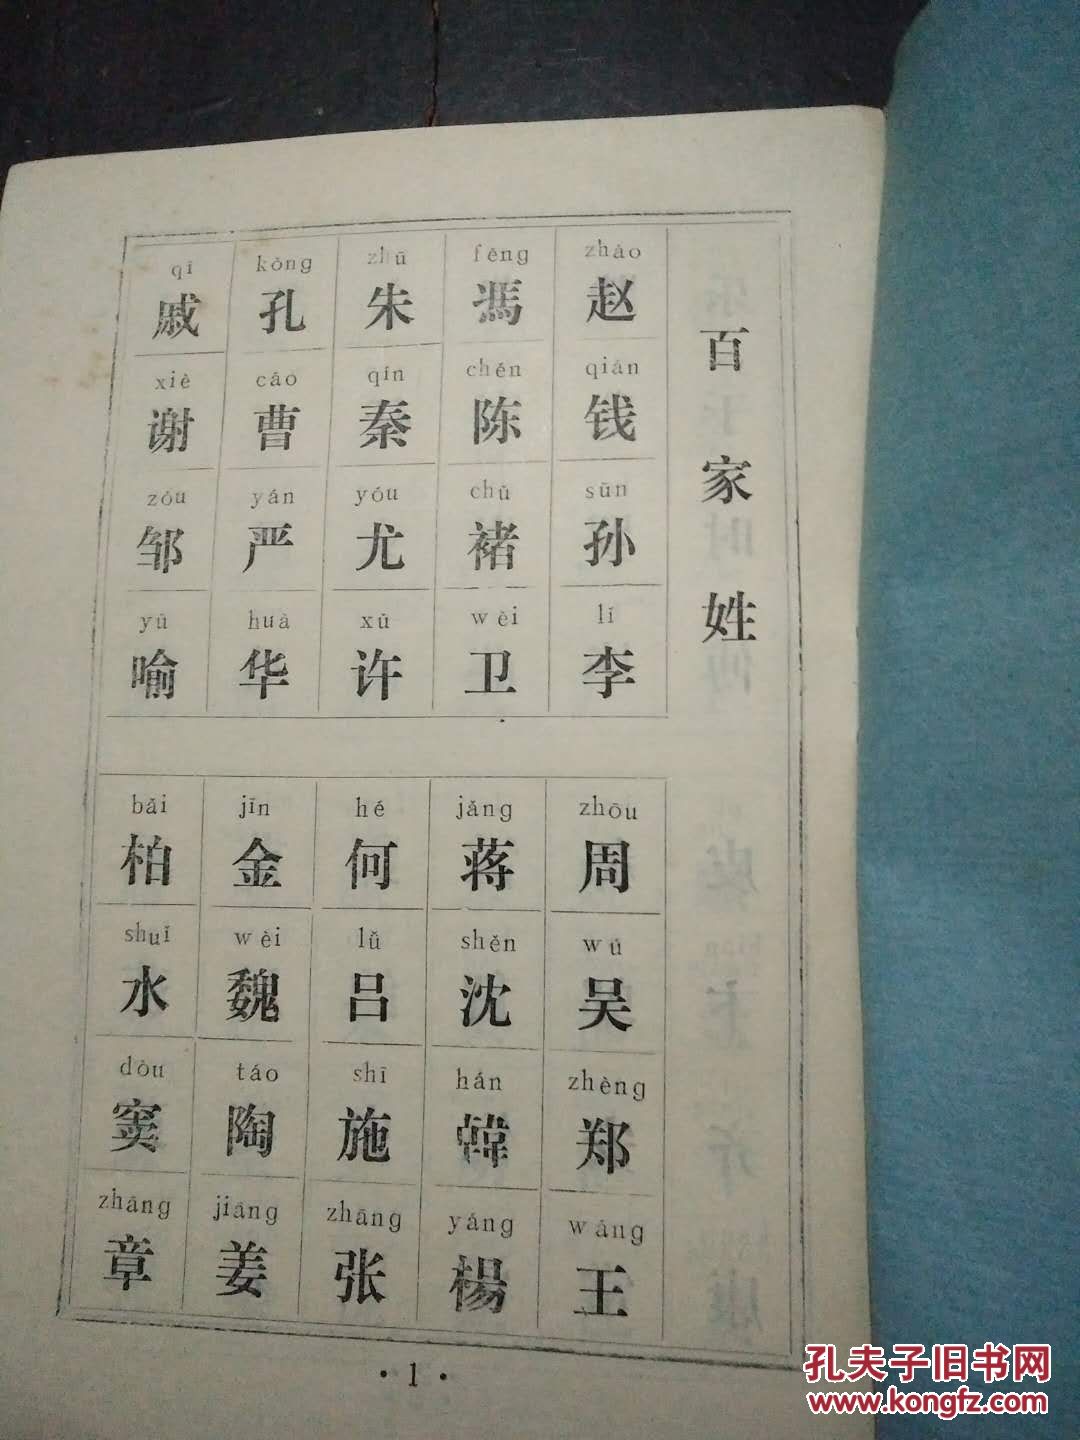 百家姓
zhào qián sūn lǐ
赵钱孙李
féng chén chǔ wèi
馮陈褚卫
zhū qín yóu xǔ
朱秦尤许
kǒng cáo yán huà
孔曹严华
qī xiè zōu yù
戚谢邹喻
zhōu wú zhèng wáng
周吴郑王
jǎng shěn hán yáng
蒋沈韓楊
hé lǚ shī zhāng
何吕施张
jīn wèi táo jiāng
金魏陶姜
bǎi shuǐ dòu zhāng
柏水窦章
·1·
孔夫子旧书网
www.kongfz.com